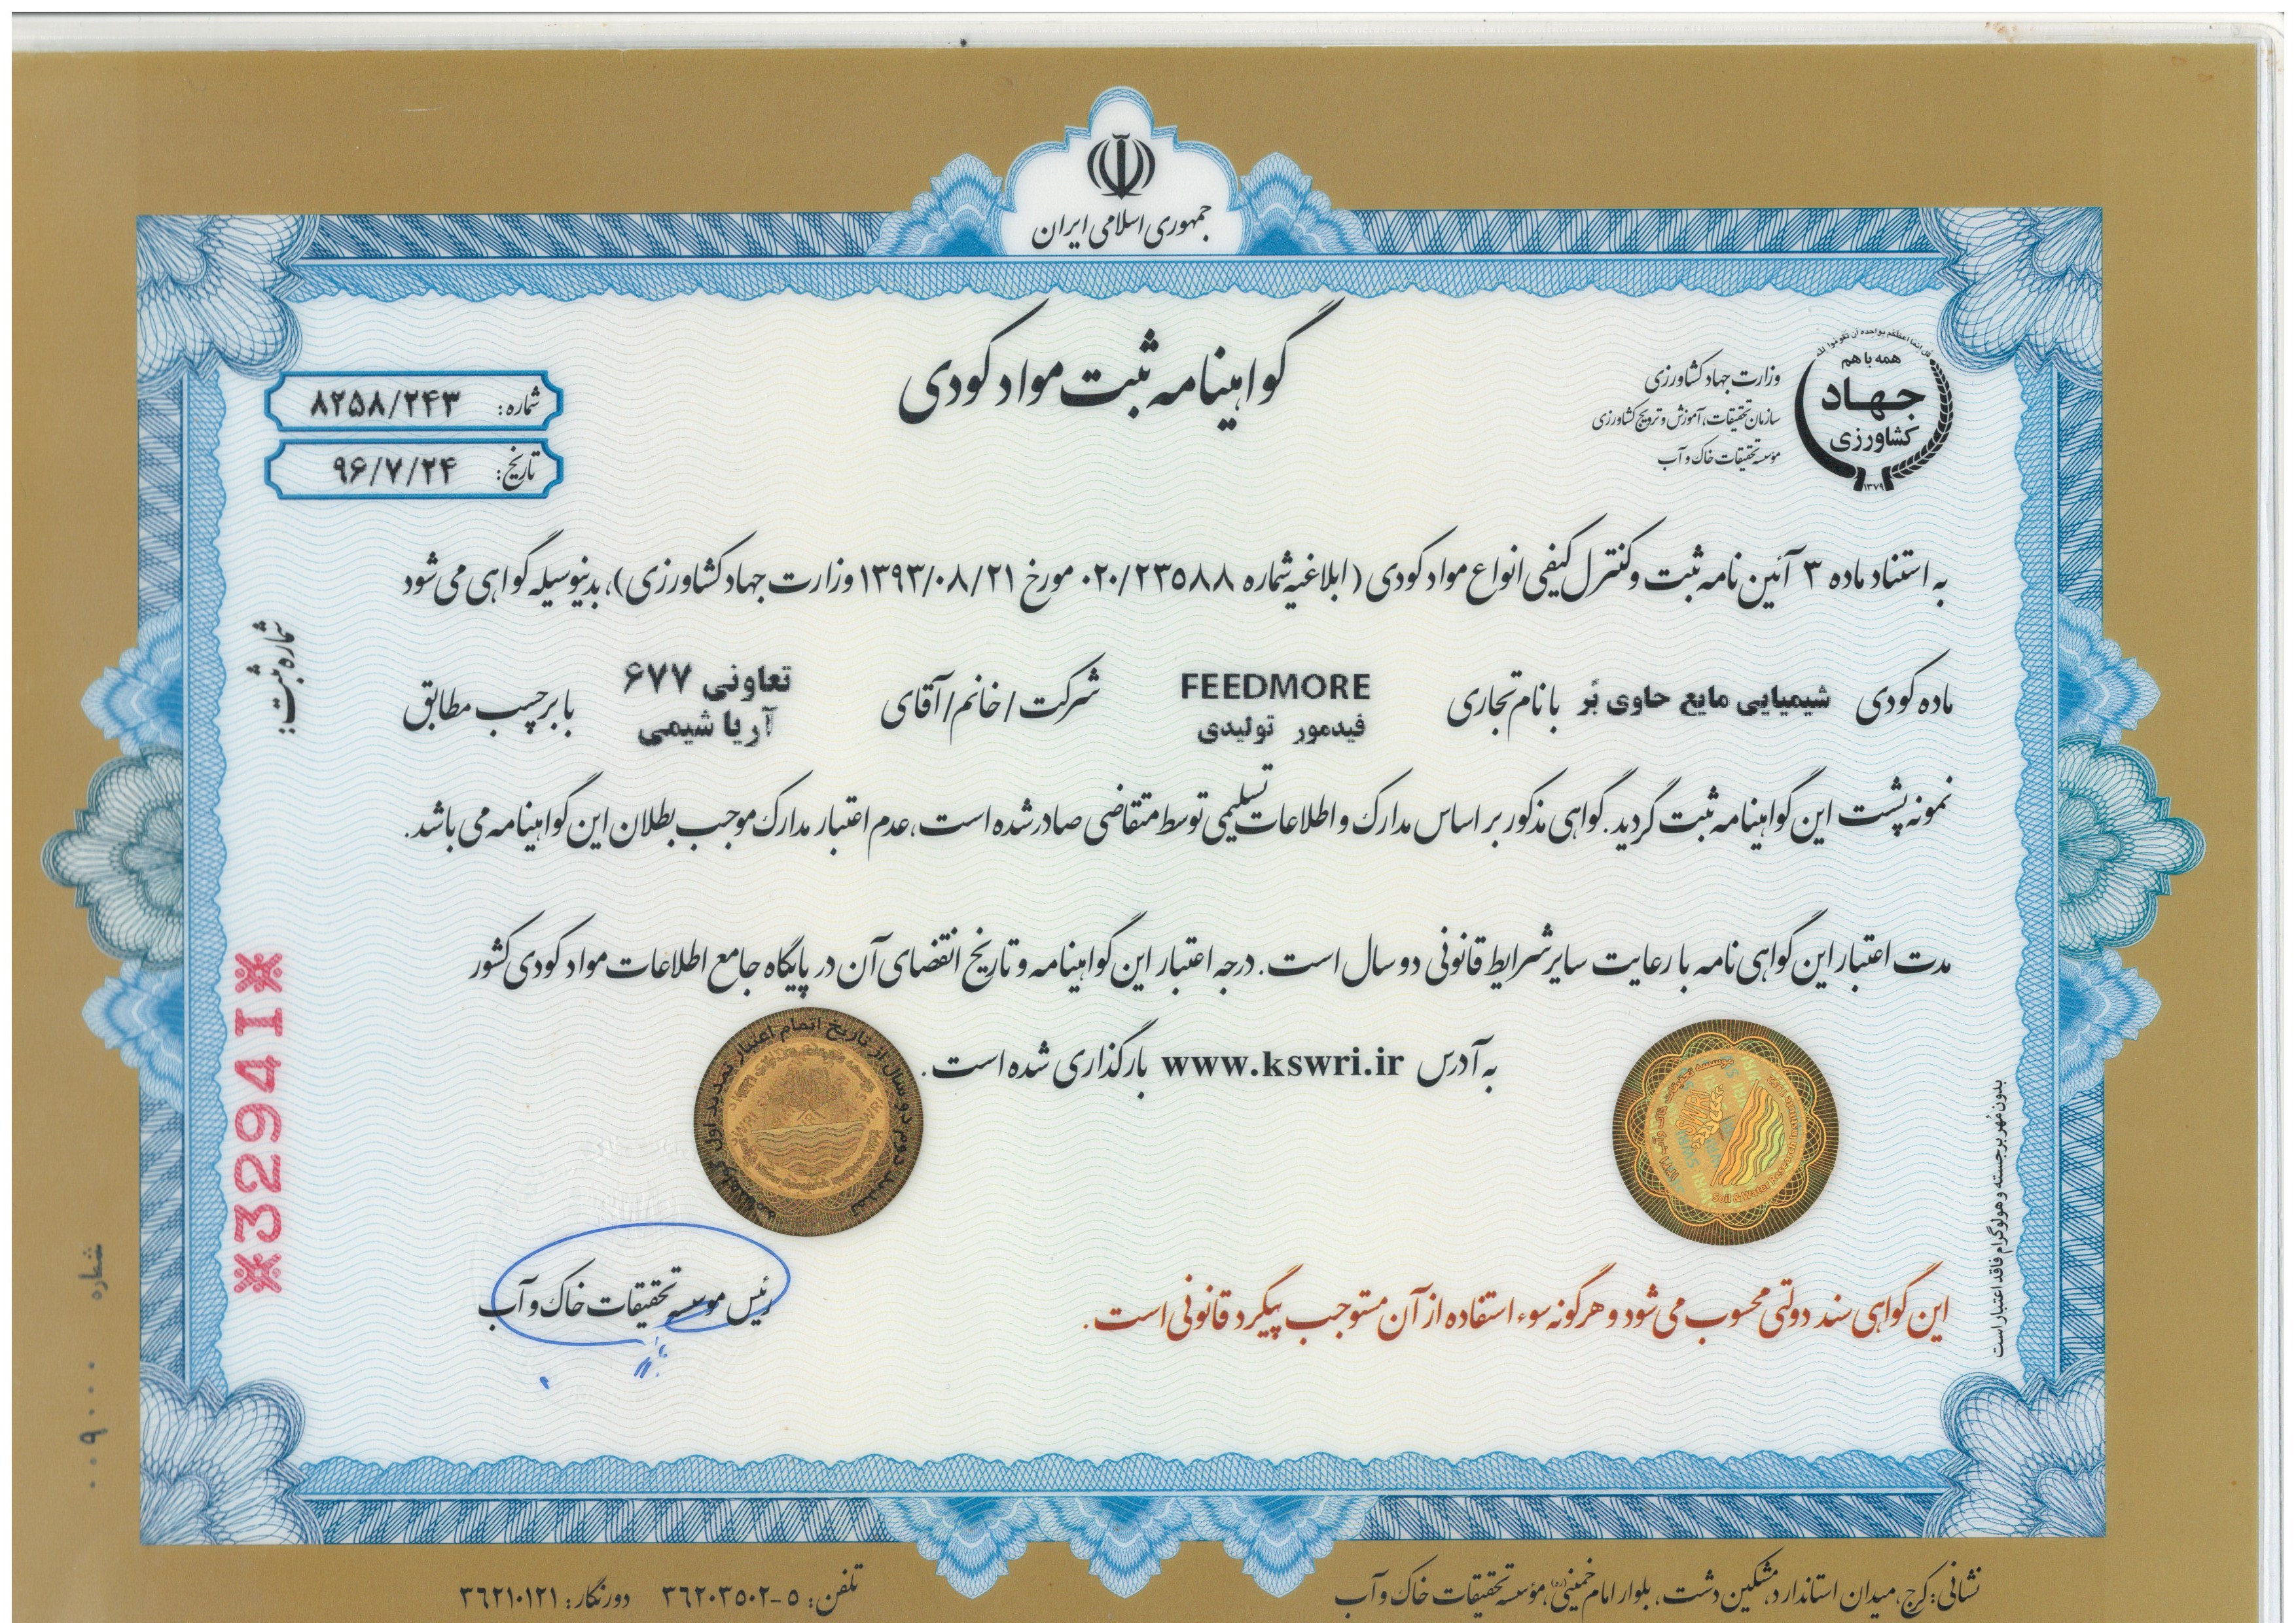 جمهوری اسلامی ایران
گواهینامه ثبت مواد کودی
همه با هم
جهاد
کشاورزی
۱۳۷۹
وزارت جهاد کشاورزی
سازمان تحقیقات، آموزش و ترویج کشاورزی
مؤسسه تحقیقات خاک و آب
شماره: ۸۲۵۸/۲۴۳
تاریخ: ۹۶/۷/۲۴
به استناد ماده ۳ آئین نامه ثبت و کنترل کیفی انواع مواد کودی (ابلاغیه شماره ۰۲۰/۲۳۵۸۸ مورخ ۱۳۹۳/۰۸/۲۱ وزارت جهاد کشاورزی)، بدینوسیله گواهی می شود
ماده کودی شیمیایی مایع حاوی بُر با نام تجاری FEEDMORE فیدمور تولیدی شرکت/خانم/آقای تعاونی ۶۷۷ آریا شیمی با برچسب مطابق
نمونه پشت این گواهینامه ثبت گردید. گواهی مذکور بر اساس مدارک و اطلاعات تسلیمی توسط متقاضی صادر شده است، عدم اعتبار مدارک موجب بطلان این گواهینامه می باشد.
مدت اعتبار این گواهی نامه با رعایت سایر شرایط قانونی دو سال است. درجه اعتبار این گواهینامه و تاریخ انقضای آن در پایگاه جامع اطلاعات مواد کودی کشور
به آدرس www.kswri.ir بارگذاری شده است.
شماره ثبت:
*3294I*
رئیس موسسه تحقیقات خاک و آب
این گواهی سند دولتی محسوب می شود و هرگونه سوء استفاده از آن مستوجب پیگرد قانونی است.
بدون مُهر برجسته و هولوگرام فاقد اعتبار است
شماره
نشانی: کرج، میدان استاندارد، مشکین دشت، بلوار امام خمینی(ره)، مؤسسه تحقیقات خاک و آب
تلفن: ۵-۳۶۲۰۳۵۰۲ دورنگار: ۳۶۲۱۰۱۲۱